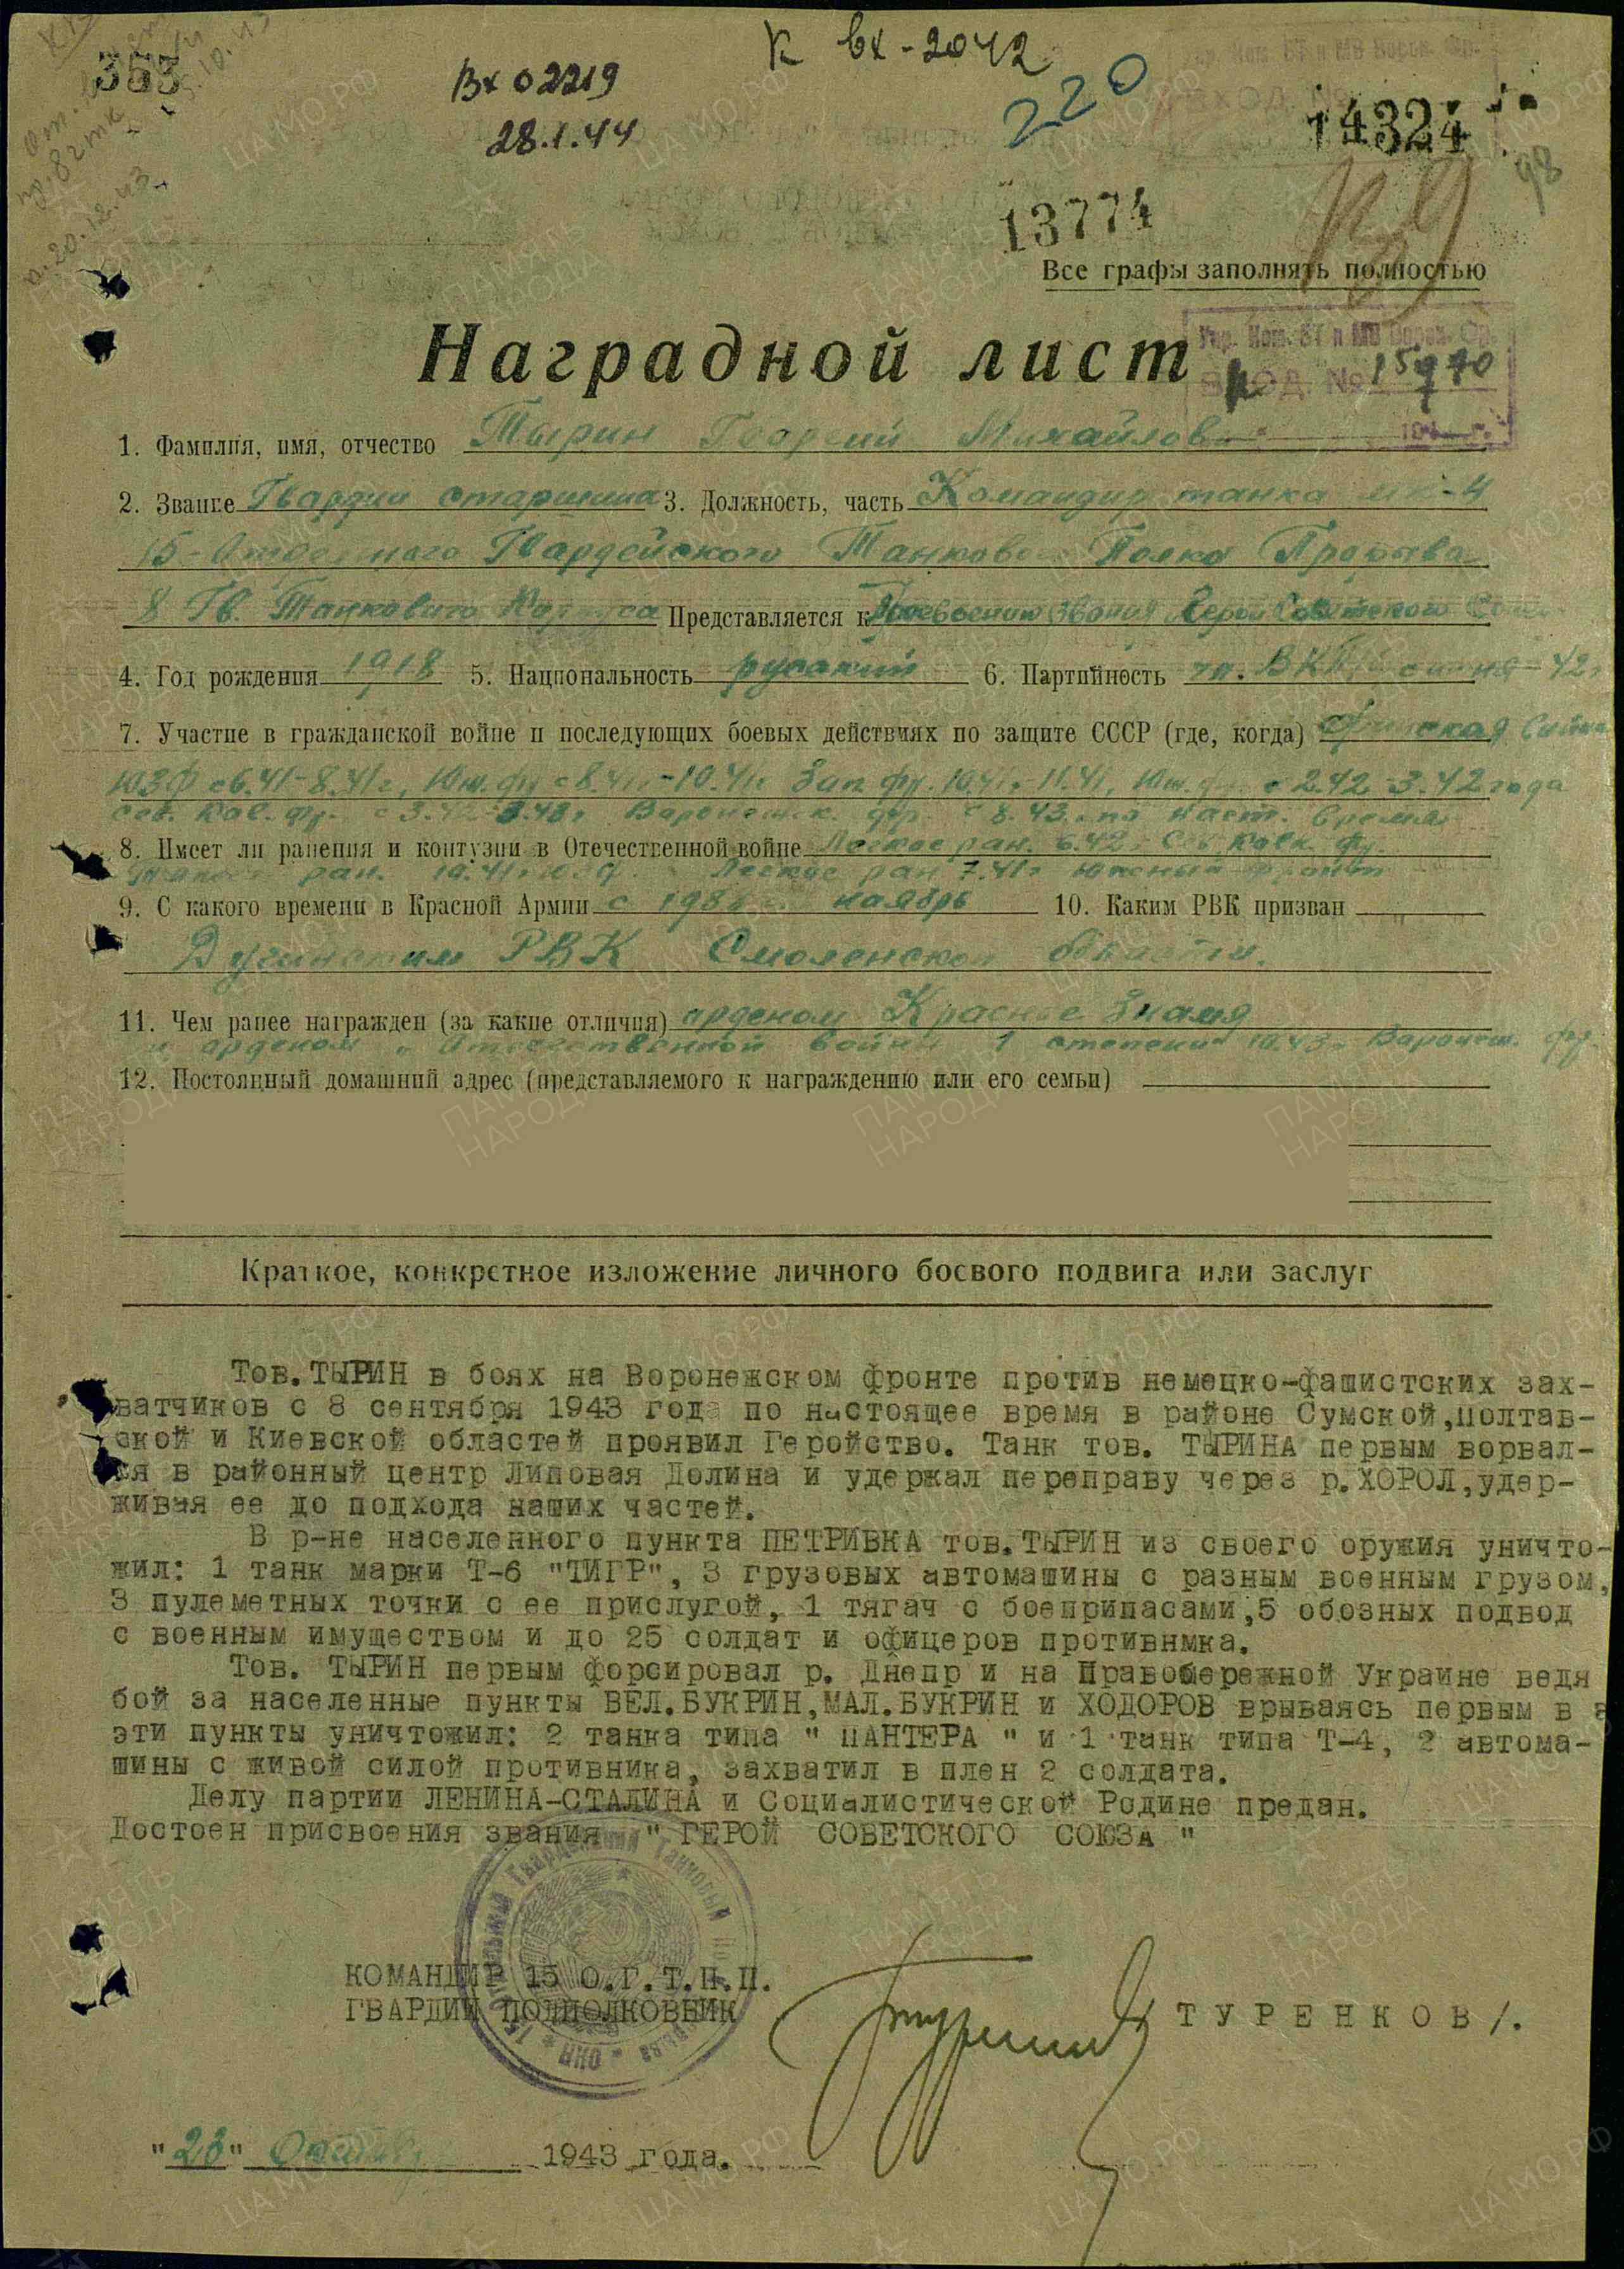 353
К вх-2042
Вх 02219
28.1.44
220
14324
98
13774
Все графы заполнять полностью
Наградной лист
Упр. Ком. БТ и МВ Ворон. Фр.
ВХОД. № 15970
1. Фамилия, имя, отчество Тырин Георгий Михайлов
2. Звание Гвардии старшина 3. Должность, часть Командир танка -4
15-Отдельного Гвардейского Танкового Полка Прорыва
8 Гв. Танкового Корпуса Представляется к Присвоению звания Герой Советского Союза
4. Год рождения 1918 5. Национальность русский 6. Партийность чл. ВКП(б) с июня-42г
7. Участие в гражданской войне и последующих боевых действиях по защите СССР (где, когда) Финская
ЮЗФ с 6.41-8.41г, Юж. фр с 8.41г-10.41г Зап фр. 10.41г-11.41, Юж. фр. с 2.42-3.42 года
Сев. Кав. фр. с 3.42-3.43г Воронежск. фр. с 8.43г по наст. время
8. Имеет ли ранения и контузии в Отечественной войне Легкое ран. 6.42г Сев Кавк. фр.
ран. 10.41г Легкое ран 7.41г Южный фронт
9. С какого времени в Красной Армии с 1938 ноябрь 10. Каким РВК призван
Дугинским РВК Смоленской области.
11. Чем ранее награжден (за какие отличия) орденом Красное Знамя
и орденом „Отечественной войны 1 степени" 10.43г Воронеж. фр.
12. Постоянный домашний адрес (представляемого к награждению или его семьи)
Краткое, конкретное изложение личного боевого подвига или заслуг
Тов. ТЫРИН в боях на Воронежском фронте против немецко-фашистских зах-
ватчиков с 8 сентября 1943 года по настоящее время в районе Сумской,полтав-
ской и Киевской областей проявил Геройство. Танк тов. ТЫРИНА первым ворвал-
ся в районный центр Липовая Долина и удержал переправу через р.ХОРОЛ,удер-
живая ее до подхода наших частей.
В р-не населенного пункта ПЕТРИВКА тов.ТЫРИН из своего оружия уничто-
жил: 1 танк марки Т-6 "ТИГР", 3 грузовых автомашины с разным военным грузом,
3 пулеметных точки с ее прислугой, 1 тягач с боеприпасами,5 обозных подвод
с военным имуществом и до 25 солдат и офицеров противнмка.
Тов. ТЫРИН первым форсировал р. Днепр и на Правобережной Украине ведя
бой за населенные пункты ВЕЛ.БУКРИН,МАЛ.БУКРИН и ХОДОРОВ врываясь первым в
эти пункты уничтожил: 2 танка типа " ПАНТЕРА " и 1 танк типа Т-4, 2 автома-
шины с живой силой противника, захватил в плен 2 солдата.
Делу партии ЛЕНИНА-СТАЛИНА и Социалистической Родине предан.
Достоен присвоения звания " ГЕРОЙ СОВЕТСКОГО СОЮЗА "
КОМАНДИР 15 О.Г.Т.П.П.
ГВАРДИИ ПОДПОЛКОВНИК / ТУРЕНКОВ /.
"23" Октября 1943 года.